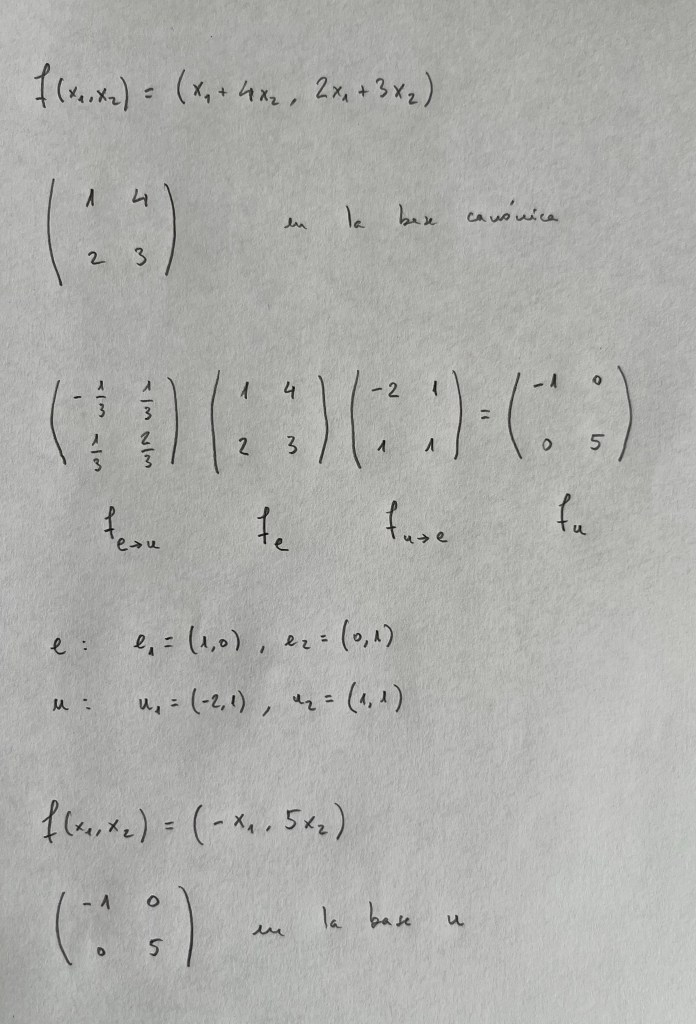 f(x₁,x₂) = (x₁ + 4x₂, 2x₁ + 3x₂)
(1 4
2 3) en la base canónica
(-1/3 1/3
1/3 2/3) (1 4
2 3) (-2 1
1 1) = (-1 0
0 5)
f e→u f e f u→e f u
e : e₁ = (1,0) , e₂ = (0,1)
u : u₁ = (-2,1) , u₂ = (1,1)
f(x₁,x₂) = (-x₁, 5x₂)
(-1 0
0 5) en la base u